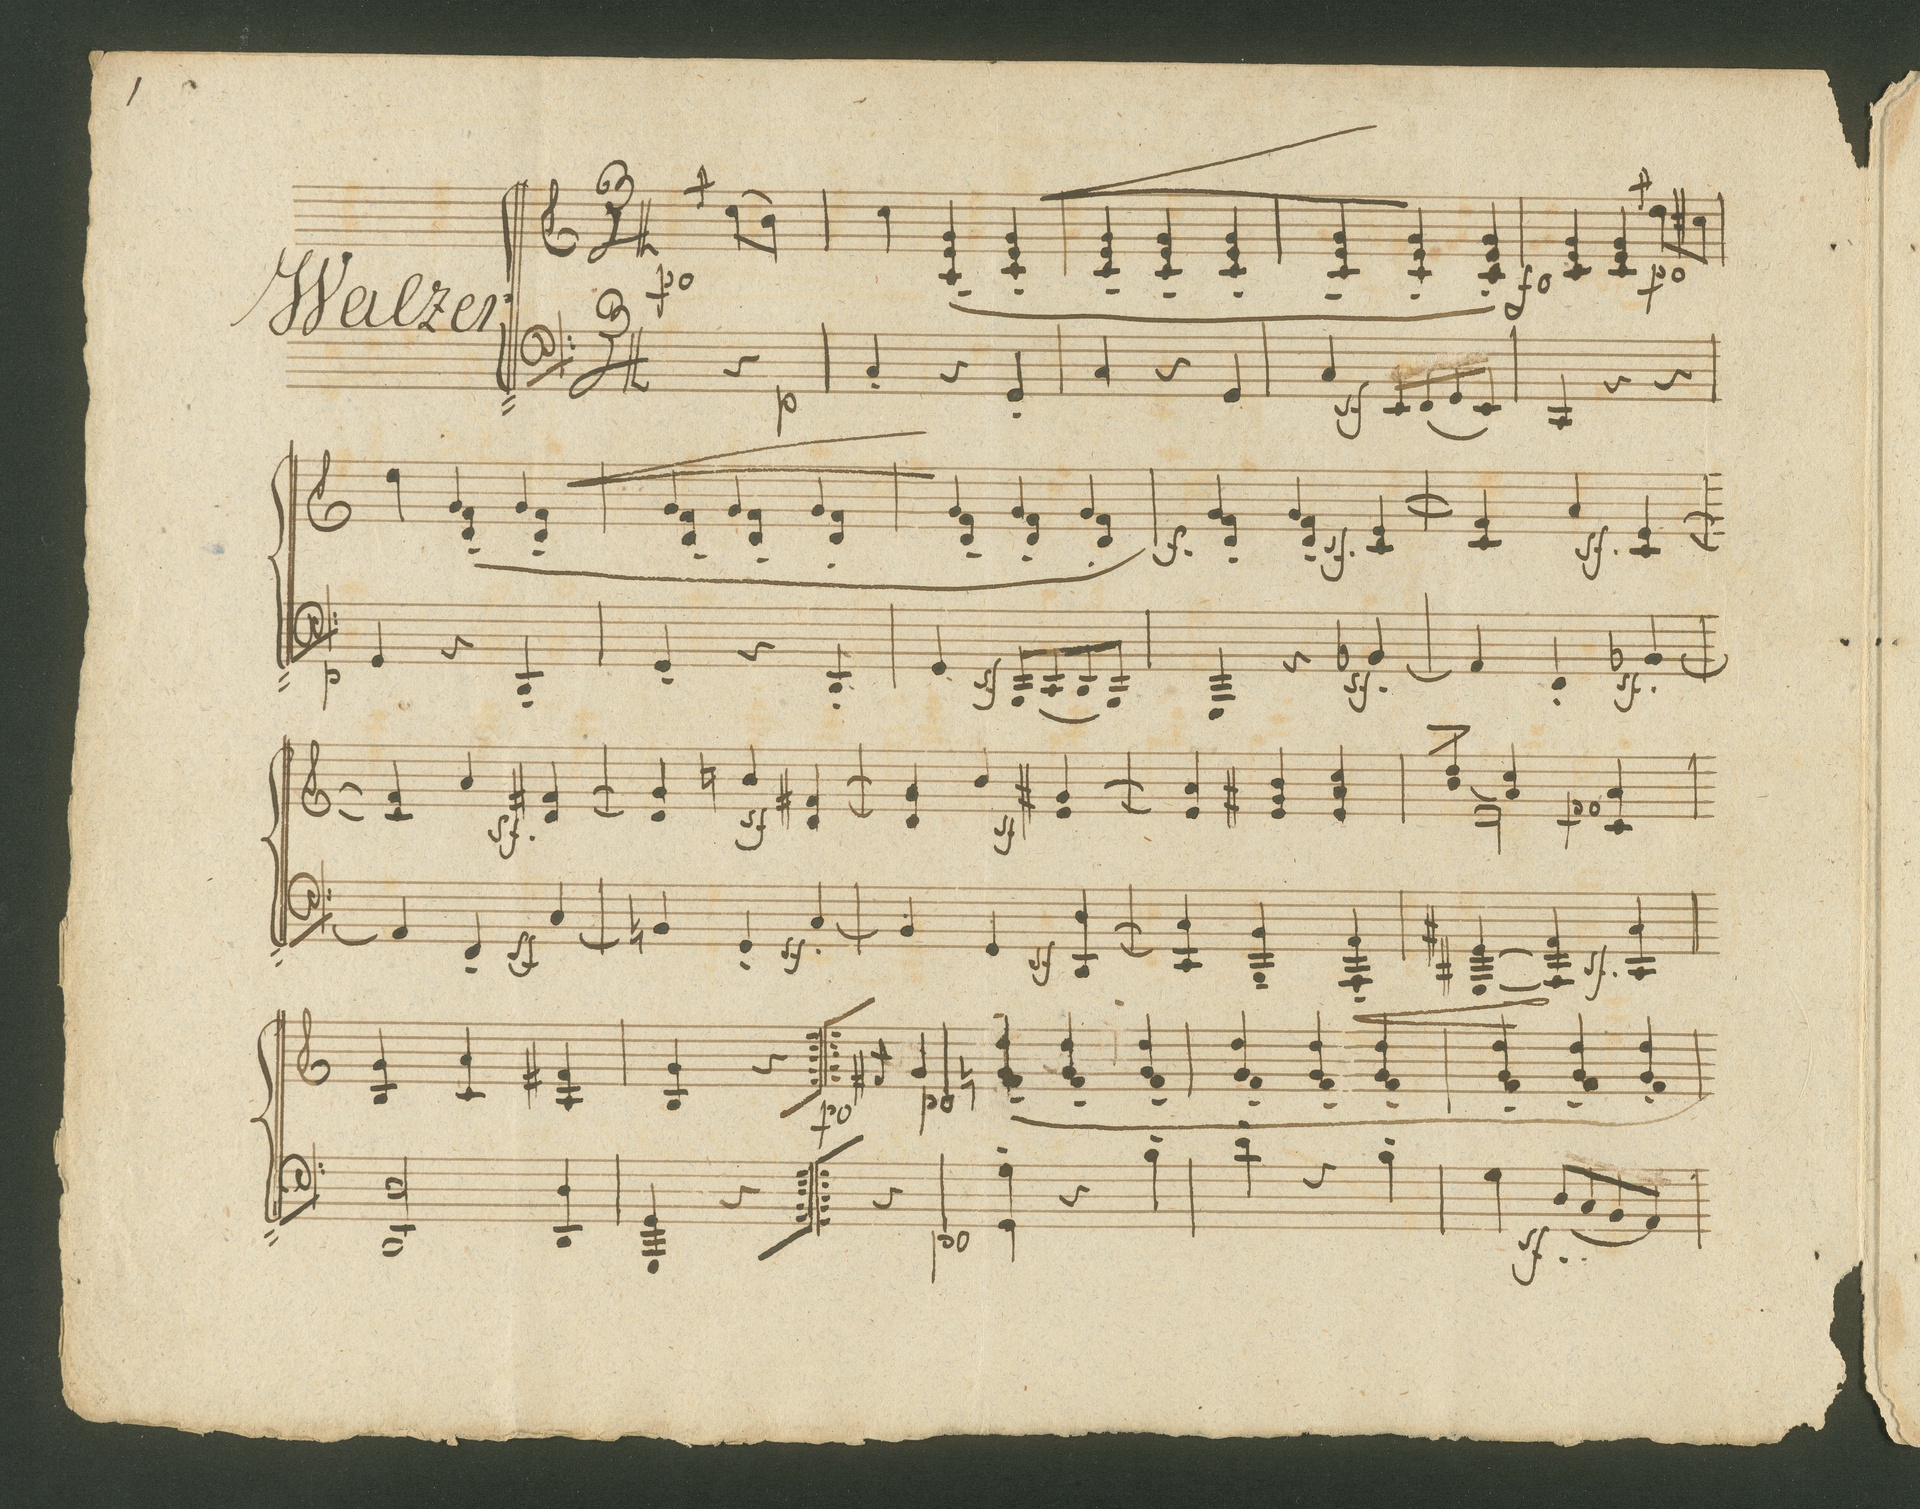 1
Walzer
3
4
po
fo
po
3
4
p
sf
sf.
sf.
sf.
p
sf
sf.
sf.
sf.
sf
sf
po
sf
sf.
sf
sf.
po
po
po
sf